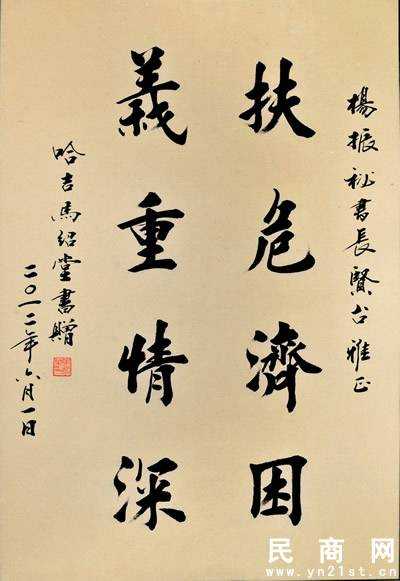 楊振祕書長賢台雅正
扶危濟困
義重情深
哈吉馬紹堂書贈
二〇一二年六月一日
民商网
www.yn21st.cn